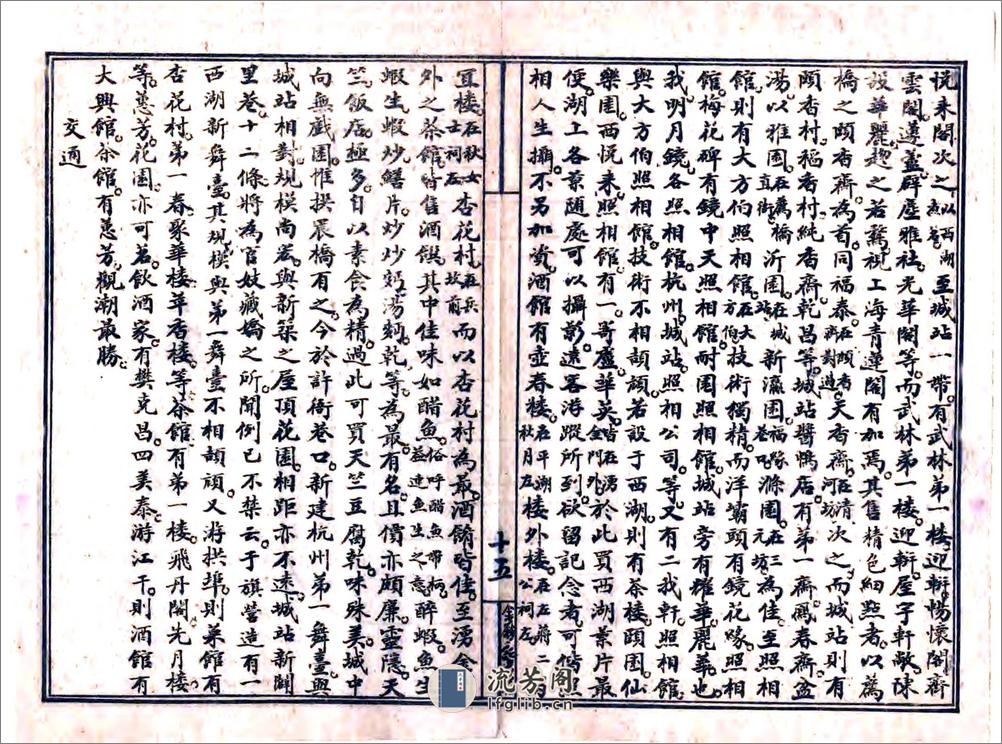 悦来阁次之以西湖为名至城站一带有武林第一楼迎轩畅怀阁齐
云阁遵芦辟尘雅社元华阁等而武林第一楼迎轩屋宇轩敞陈
設华麗趋之若鶩视上海青蓮阁有加焉其售精色细點者以薦
橋之頤香斋為首同福泰在頤香斋對過天香斋在清河坊次之而城站則有
頤香村稻香村純香斋乾昌等城站醬鴨店有第一斋鳳春斋盆
湯以雅园在薦橋直街沂园在城站新瀛园福緣巷口滌园在三元坊為佳至照相
館則有大方伯照相館在大方伯技術獨精而洋壩頭有鏡花緣照相
館梅花碑有鏡中天照相館耐园照相館城站旁有耀華麗華也
我明月鏡各照相館杭州城站照相公司等又有二我軒照相館
與大方伯照相館技術不相頡頏若設于西湖則有茶楼頤园仙
樂园西悦来照相館有一寄廬華英皆在湧金門外於此買西湖景片最
便湖上各景随處可以攝影遠客游蹤所到欲留記念者可偕照
相人生攝不另加資酒館有壶春楼在平湖秋月左楼外楼在左蔣二公祠左
宜楼在秋女士祠左杏花村在岳坟前而以杏花村為最酒餚皆佳至湧金
外之茶館皆售酒饌其中佳味如醋魚俗呼醋魚帶柄益連魚生之意醉蝦魚生
蝦生蝦炒鳝片炒炒麪湯麪乾等為最有名且價亦頗廉靈隱天
竺飯店極多自以素食為精過此可買天竺豆腐乾味殊美城中
向無戲園惟拱宸橋有之今於許衙巷口新建杭州第一舞臺與
城站相對規模尚宏與新築之屋頂花園相距亦不遠城站新闢
里巷十二條將為官妓藏嬌之所聞例已不禁云于旗營造有一
西湖新舞臺其規模與弟一舞臺不相頡頏又游拱埠則菜館有
杏花村第一春聚華楼萃香楼等茶館有第一楼飛丹閣先月楼
等蕙芳花園亦可茗飲酒家有樊克昌四美泰游江干則酒館有
大興館茶館有蕙芳觀潮最勝
交通
十五
流芳阁
lfglib.cn